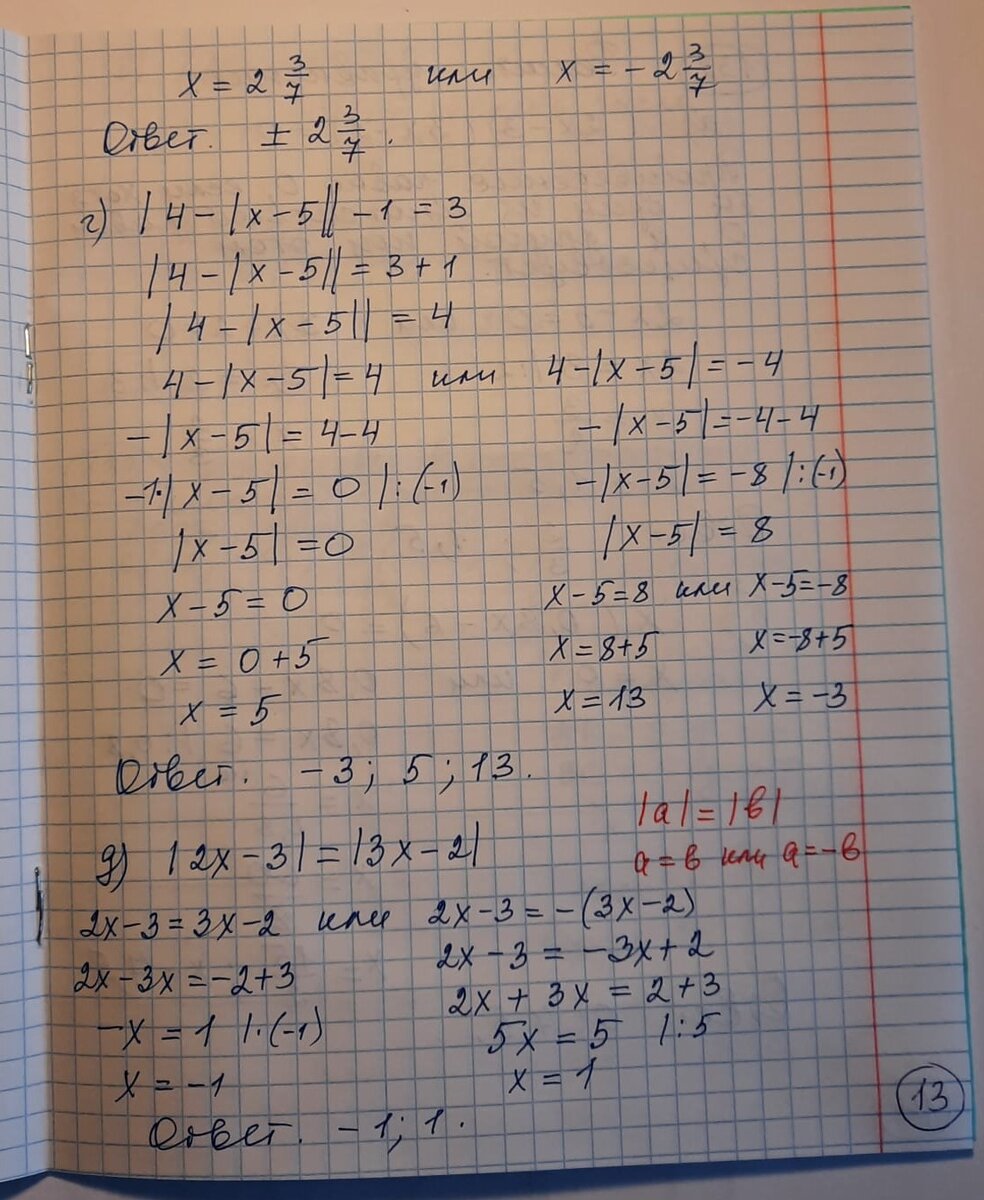 x = 2 3/7 или x = -2 3/7
Ответ. ± 2 3/7.
г) |4-|x-5||-1 = 3
|4-|x-5|| = 3+1
|4-|x-5|| = 4
4-|x-5|=4 или 4-|x-5|=-4
-|x-5| = 4-4 -|x-5|=-4-4
-1·|x-5| = 0 |:(-1) -|x-5|=-8 |:(-1)
|x-5|=0 |x-5|=8
x-5=0 x-5=8 или x-5=-8
x = 0+5 x=8+5 x=-8+5
x = 5 x=13 x=-3
Ответ. -3; 5; 13.
|a|=|в|
a=в или a=-в
д) |2x-3|=|3x-2|
2x-3=3x-2 или 2x-3=-(3x-2)
2x-3x=-2+3 2x-3=-3x+2
-x = 1 |·(-1) 2x+3x=2+3
x = -1 5x=5 |:5
x=1
Ответ. -1; 1.
13